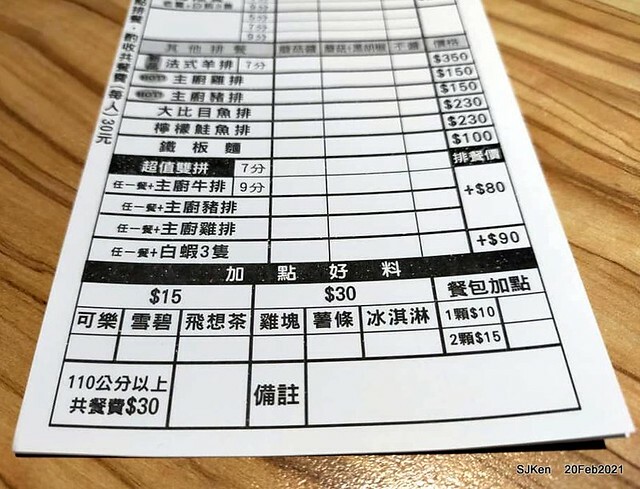 點排餐，酌收共餐費(每人)30元
5分
9分
5分
7分
9分
其他排餐 蘑菇醬 蘑菇+黑胡椒 不醬 價格
法式羊排 7分 $350
HOT! 主廚雞排 $150
HOT! 主廚豬排 $150
大比目魚排 $230
檸檬鮭魚排 $230
鐵板麵 $100
超值雙拼 7分 排餐價
任一餐+主廚牛排 9分 +$80
任一餐+主廚豬排
任一餐+主廚雞排
任一餐+白蝦3隻 +$90
加點好料
$15 $30 餐包加點
可樂 雪碧 飛想茶 雞塊 薯條 冰淇淋 1顆$10
2顆$15
110公分以上 備註
共餐費$30
SJKen 20Feb2021